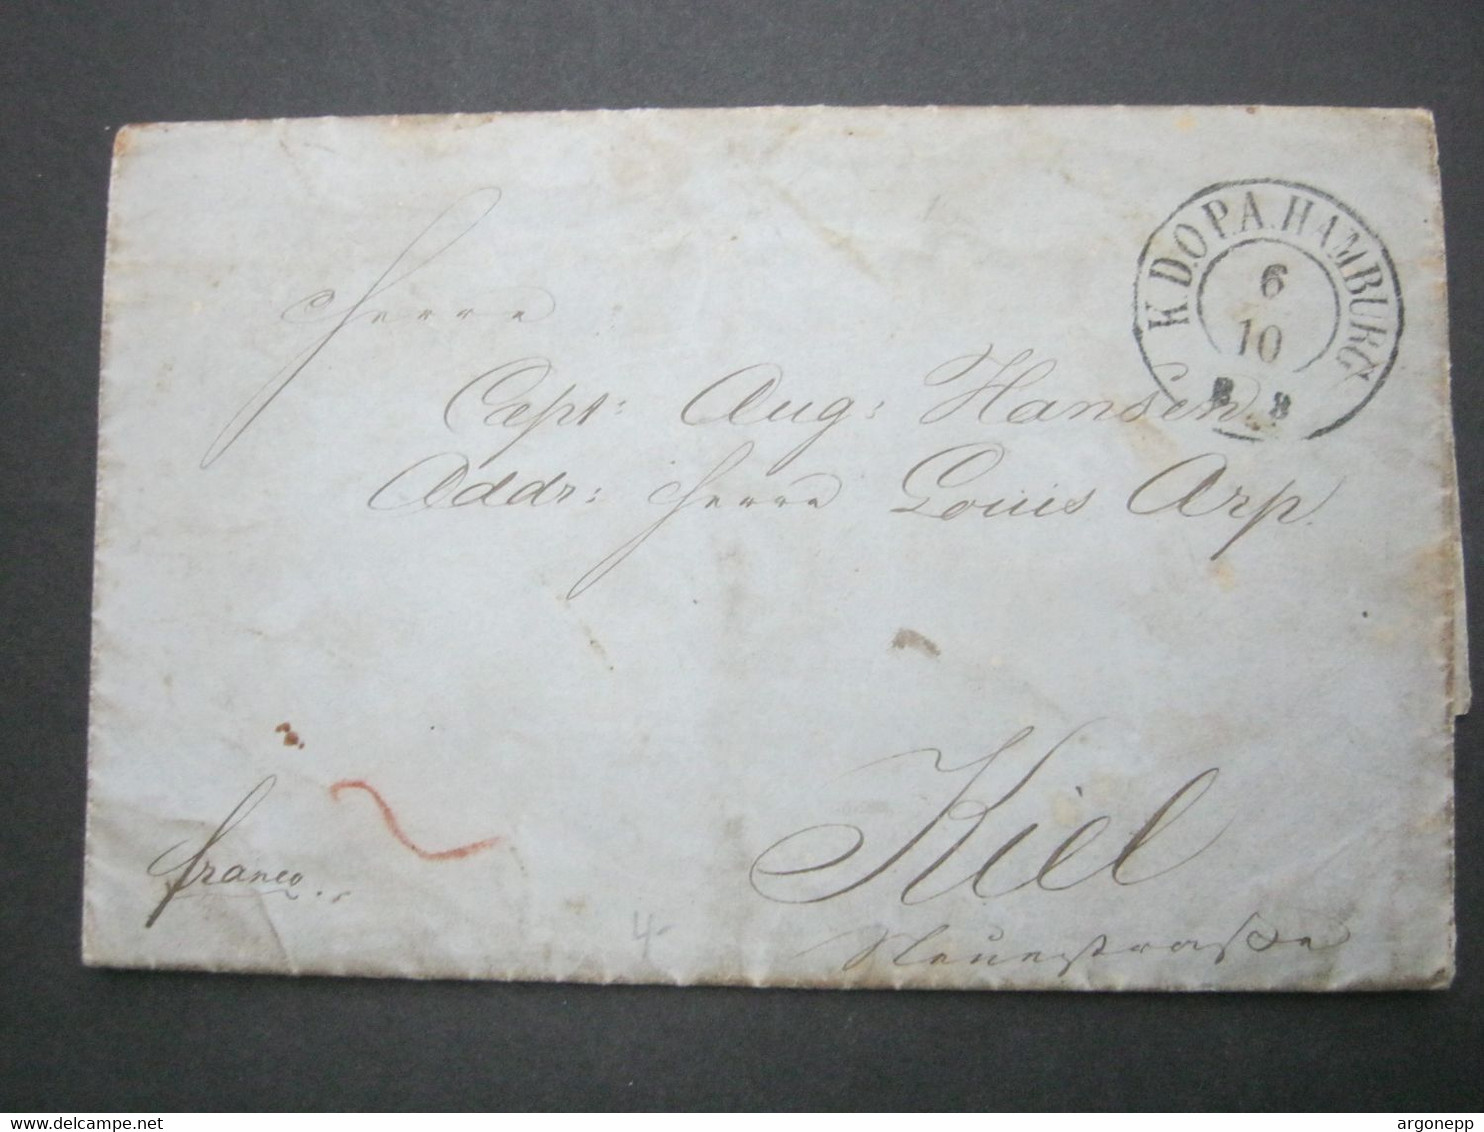 K.D.O.P.A. HAMBURG
6
10
Herrn
Capt: Aug: Hansen
Addr: Herrn Louis Arp.
Kiel
Neuestraße
franco.
4-
www.delcampe.net
argonepp